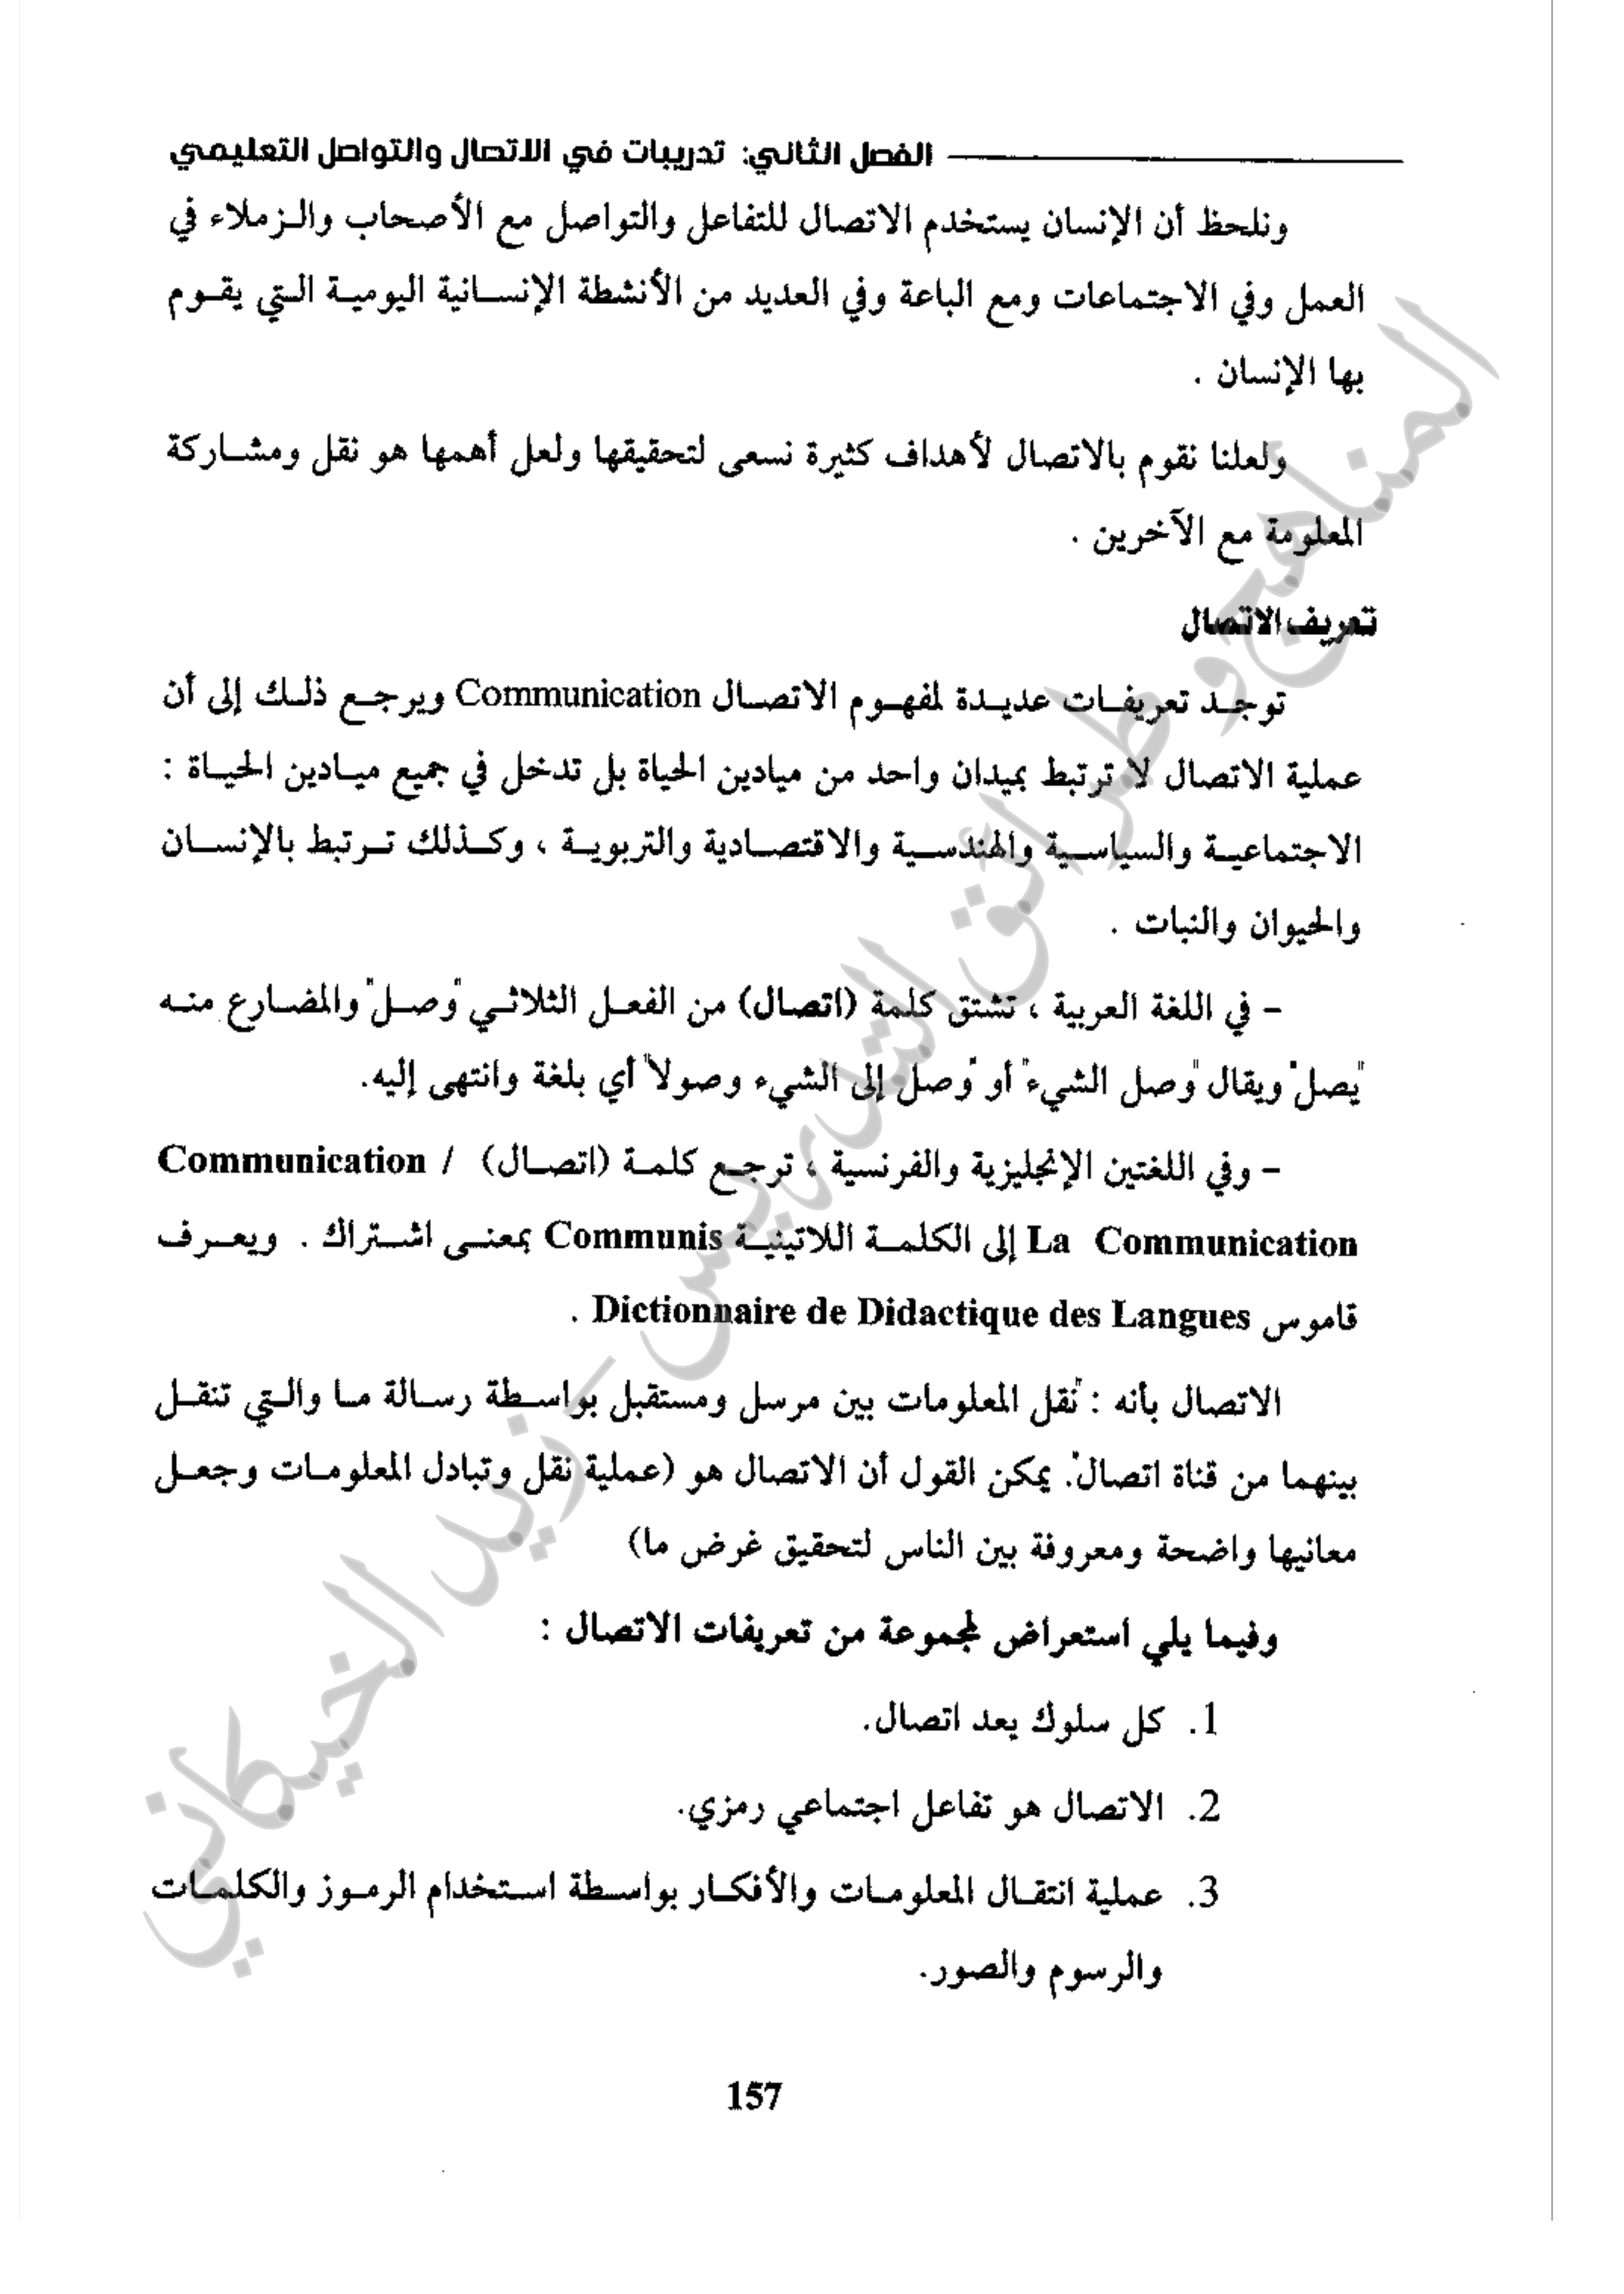 الفصل الثاني: تدريبات في الاتصال والتواصل التعليمي
ونلحظ أن الإنسان يستخدم الاتصال للتفاعل والتواصل مع الأصحاب والزملاء في
العمل وفي الاجتماعات ومع الباعة وفي العديد من الأنشطة الإنسانية اليومية التي يقوم
بها الإنسان .
ولعلنا نقوم بالاتصال لأهداف كثيرة نسعى لتحقيقها ولعل أهمها هو نقل ومشاركة
المعلومة مع الآخرين .
تعريف الاتصال
توجد تعريفات عديدة لمفهوم الاتصال Communication ويرجع ذلك إلى أن
عملية الاتصال لا ترتبط بميدان واحد من ميادين الحياة بل تدخل في جميع ميادين الحياة :
الاجتماعية والسياسية والهندسية والاقتصادية والتربوية ، وكذلك ترتبط بالإنسان
والحيوان والنبات .
– في اللغة العربية ، تشتق كلمة (اتصال) من الفعل الثلاثي "وصل" والمضارع منه
"يصل" ويقال "وصل الشيء" أو "وصل إلى الشيء وصولا" أي بلغة وانتهى إليه.
– وفي اللغتين الإنجليزية والفرنسية ، ترجع كلمة (اتصال) / Communication
La Communication إلى الكلمة اللاتينية Communis بمعنى اشتراك . ويعرف
قاموس Dictionnaire de Didactique des Langues .
الاتصال بأنه : "نقل المعلومات بين مرسل ومستقبل بواسطة رسالة ما والتي تنقل
بينهما من قناة اتصال". يمكن القول أن الاتصال هو (عملية نقل وتبادل المعلومات وجعل
معانيها واضحة ومعروفة بين الناس لتحقيق غرض ما)
وفيما يلي استعراض لمجموعة من تعريفات الاتصال :
1. كل سلوك يعد اتصال.
2. الاتصال هو تفاعل اجتماعي رمزي.
3. عملية انتقال المعلومات والأفكار بواسطة استخدام الرموز والكلمات
والرسوم والصور.
157
المناهج وطرائق التدريس - زيد الخيكاني